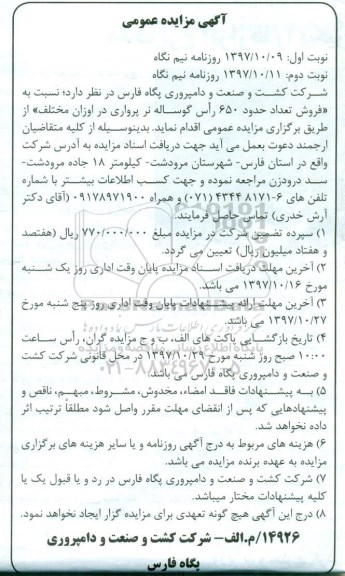 آگهی مزایده عمومی
نوبت اول: ۱۳۹۷/۱۰/۰۹ روزنامه نیم نگاه
نوبت دوم: ۱۳۹۷/۱۰/۱۱ روزنامه نیم نگاه
شرکت کشت و صنعت و دامپروری پگاه فارس در نظر دارد؛ نسبت به
«فروش تعداد حدود ۶۵۰ رأس گوساله نر پرواری در اوزان مختلف» از
طریق برگزاری مزایده عمومی اقدام نماید. بدینوسیله از کلیه متقاضیان
ارجمند دعوت بعمل می آید جهت دریافت اسناد مزایده به آدرس شرکت
واقع در استان فارس- شهرستان مرودشت- کیلومتر ۱۸ جاده مرودشت-
سد درودزن مراجعه نموده و جهت کسب اطلاعات بیشتر با شماره
تلفن های ۶-۴۳۴۴۸۱۷۱ (۰۷۱) و همراه ۰۹۱۷۸۹۷۱۹۰۰ (آقای دکتر
آرش خدری) تماس حاصل فرمایند.
۱) سپرده تضمین شرکت در مزایده مبلغ ۷۷۰/۰۰۰/۰۰۰ ریال (هفتصد
و هفتاد میلیون ریال) تعیین می گردد.
۲) آخرین مهلت دریافت اسناد مزایده پایان وقت اداری روز یک شنبه
مورخ ۱۳۹۷/۱۰/۱۶ می باشد.
۳) آخرین مهلت ارائه پیشنهادات پایان وقت اداری روز پنج شنبه مورخ
۱۳۹۷/۱۰/۲۷ می باشد.
۴) تاریخ بازگشایی پاکت های الف، ب و ج مزایده گران، رأس ساعت
۱۰:۰۰ صبح روز شنبه مورخ ۱۳۹۷/۱۰/۲۹ در محل قانونی شرکت کشت
و صنعت و دامپروری پگاه فارس می باشد.
۵) به پیشنهادات فاقد امضاء، مخدوش، مشروط، مبهم، ناقص و
پیشنهادهایی که پس از انقضای مهلت مقرر واصل شود مطلقاً ترتیب اثر
داده نخواهد شد.
۶) هزینه های مربوط به درج آگهی روزنامه و یا سایر هزینه های برگزاری
مزایده به عهده برنده مزایده می باشد.
۷) شرکت کشت و صنعت و دامپروری پگاه فارس در رد و یا قبول یک یا
کلیه پیشنهادات مختار میباشد.
۸) درج این آگهی هیچ گونه تعهدی برای مزایده گزار ایجاد نخواهد نمود.
۱۴۹۲۶/م.الف- شرکت کشت و صنعت و دامپروری
پگاه فارس